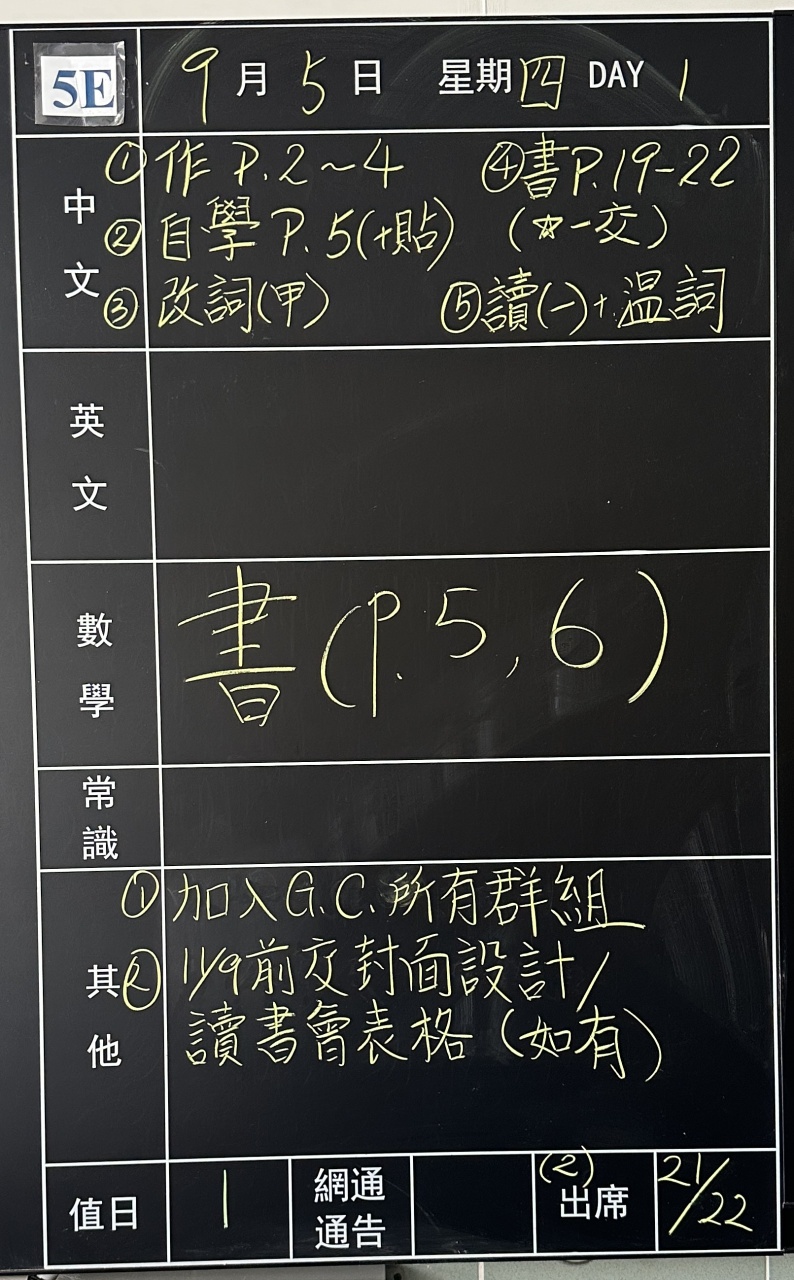 5E 9月5日 星期四 DAY 1
中文
①作 P.2~4 ④書P.19-22
②自學 P.5(+貼) (☆一交)
③改詞(甲) ⑤讀(一)+温詞
英文
數學
書(P.5,6)
常識
其他
①加入G.C.所有群組
②11/9前交封面設計/
讀書會表格(如有)
值日 1 網通通告 (2)出席 21/22